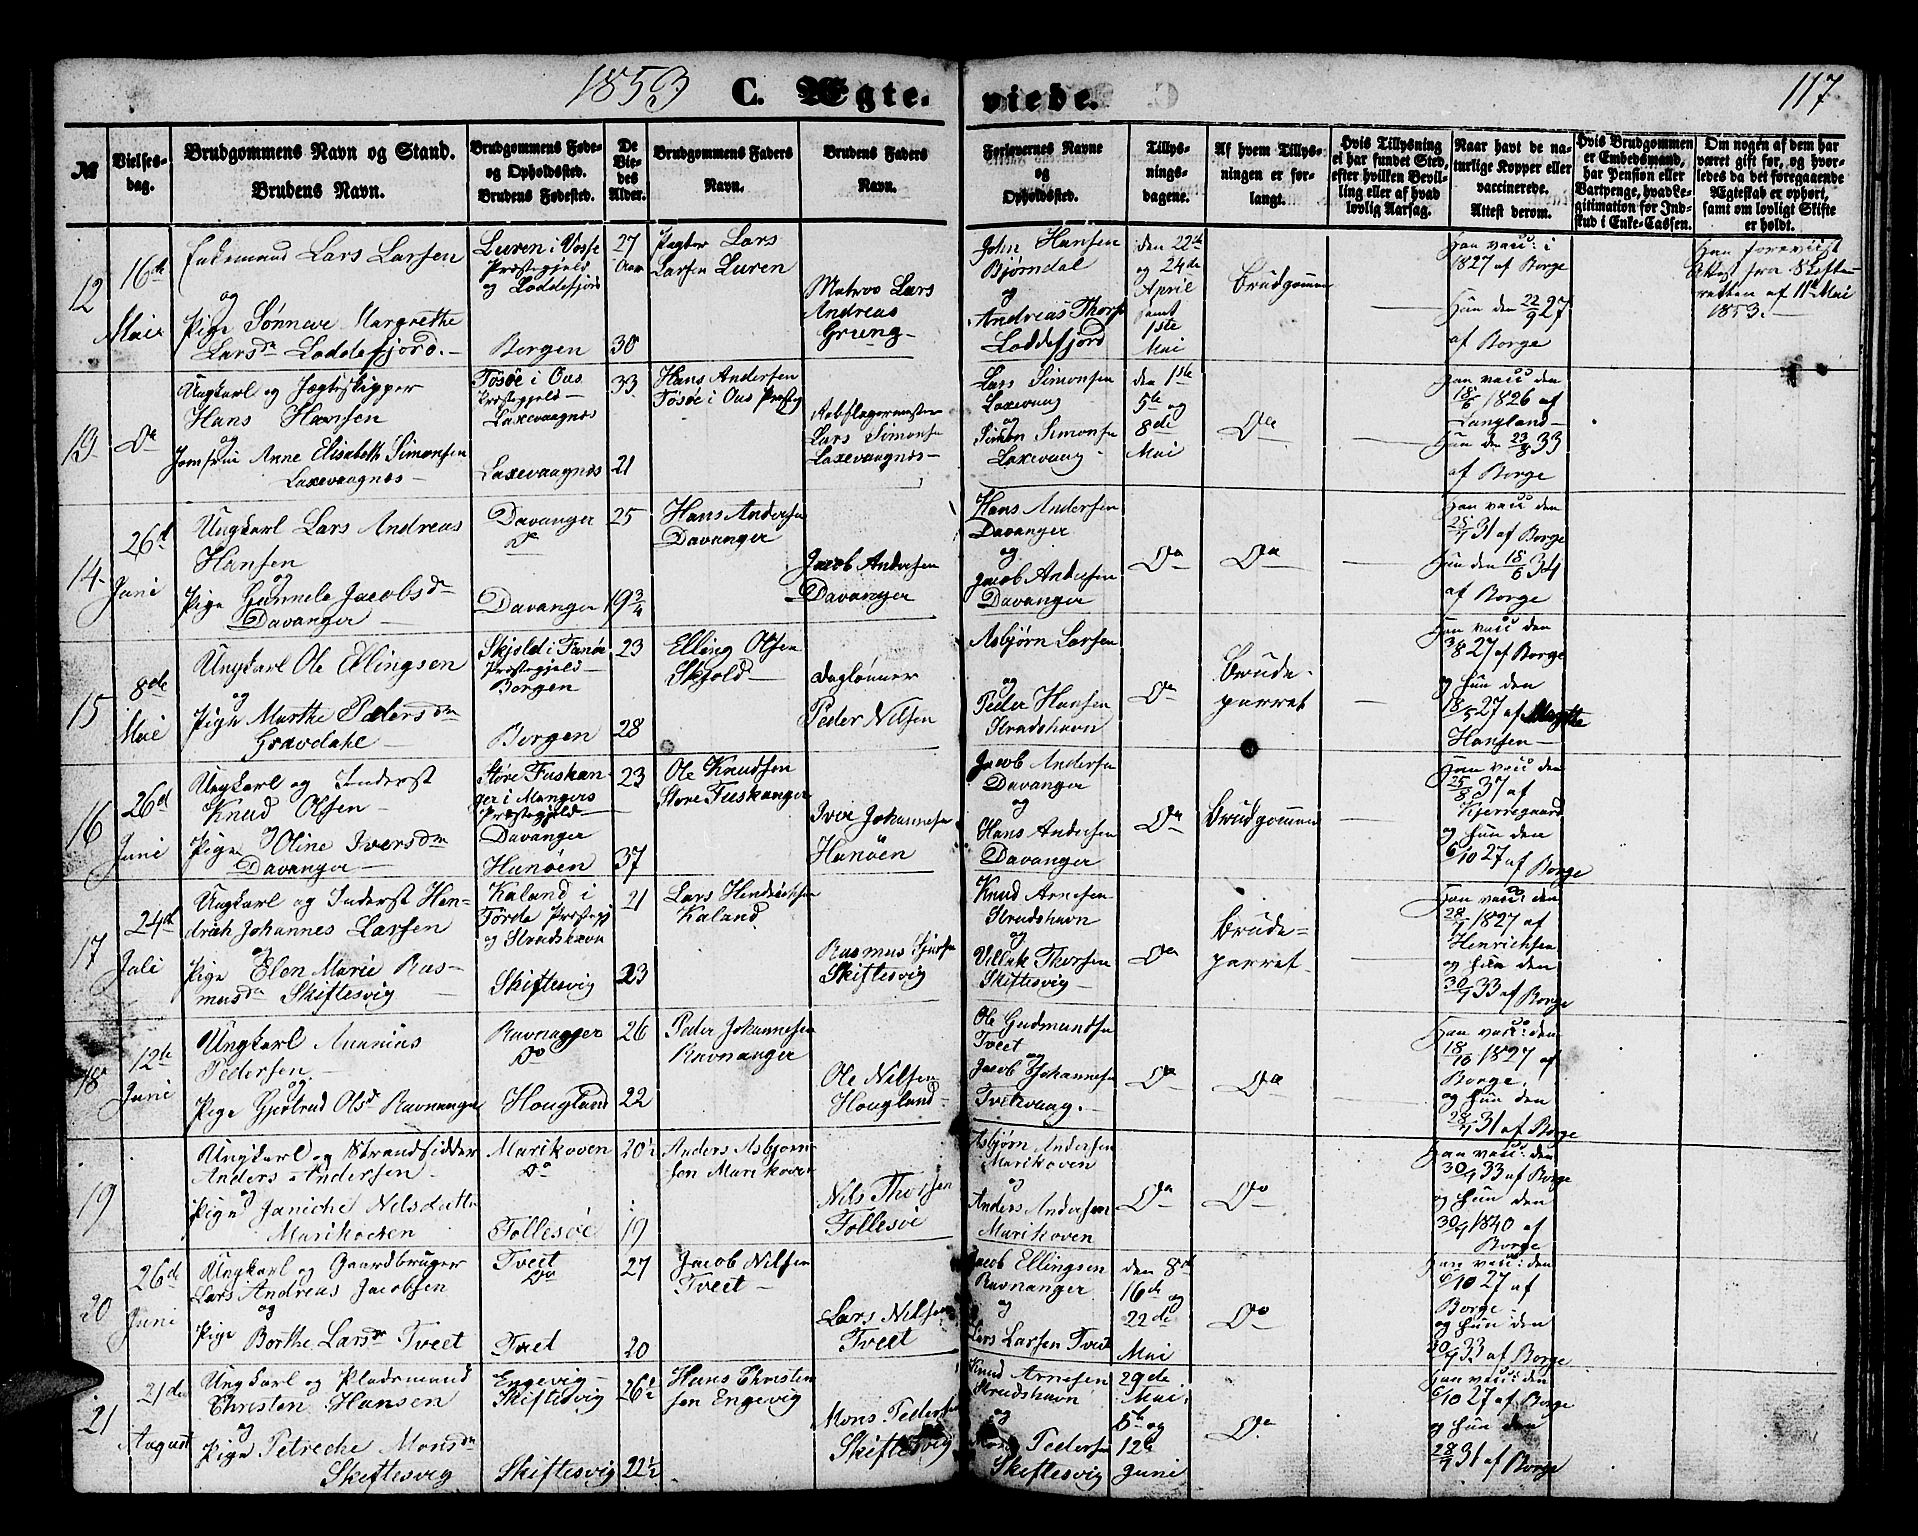 1853 C. Ægte. viede. 117
№
Vielses-
dag.
Brudgommens Navn og Stand.
Brudens Navn.
Brudgommens Føde-
og Opholdssted.
Brudens Fødested.
De
Vie-
des
Alder.
Brudgommens Faders
Navn.
Brudens Faders
Navn.
Forlovernes Navne
og
Opholdssted.
Tillys-
nings-
dagene.
Af hvem Tillys-
ningen er for-
langt.
Hvis Tillysning
ei har fundet Sted,
efter hvilken Bevil-
ling eller af hvad
lovlig Aarsag.
Naar havt de na-
turlige Kopper eller
vaccinerede.
Attest derom.
Hvis Brudgommen
er Embedsmand,
har Pension eller
Vartpenge, hvad Le-
gitimation for Ind-
skud i Enke-Cassen.
Om nogen af dem har
været gift før, og hvor-
ledes da det foregaaende
Ægteskab er ophørt,
samt om lovligt Skifte
er holdt.
12
16de
Mai
Enkemand Lars Larsen
og
Pige Sønneve Margrethe
Larsdr Loddefjord.
Luren i Vosse
Præstegjeld
og Loddefjord
Borgen
27
Aar
30
Lars
Larsen Luren
Matros Lars
Andreas
Grung
John Hansen
Bjørndal
og
Andreas Thorp
Loddefjord
den 22de
og 24de
April
samt
1ste
Mai
Brudgommen
Han vacc: i
1827 af Borge
Hun den 22/9 27
af Borge
Han forevist
Attest fra Skifte-
retten af 11te Mai
1853.
13
Do
Ungkarl og Jægtskipper
Hans Hansen
og
Jomfru Anne Elisabeth Simonsen
Laxevaagnes
Tøsøe i Ous
Præstegjeld
Laxevaagnes
Laxevaagnes
33
21
Hans Andersen
Tøsøe i Ous Præstegj
Lars Simonsen
Laxevaagnes
Lars Simonsen
Laxevaag
og
Simon Simonsen
Laxevaag
den 1ste
5te og
8de
Mai
Do
Han vacc den
18/6 1826 af
Langland
Hun den 23/8 33
af Borge
14
26d
Juni
Ungkarl Lars Andreas
Hansen
og
Pige Gunnele Jacobsdr
Davanger
Davanger
Do
Davanger
25
19 3/4
Hans Andersen
Davanger
Jacob Andersen
Davanger
Hans Andersen
Davanger
og
Jacob Andersen
Davanger
Do
Do
Han vacc den
25/7 31 af Borge
Hun den 18/6 34
af Borge
15
8de
Mai
Ungkarl Ole Ellingsen
og
Pige Marthe Pedersdr
Gravdahl
Skjold i Fanøe
Præstegjeld
Borgen
Borgen
23
28
Elling Olsen
Skjold
Daglønner
Peder Nilsen
Asbjørn Larsen
og
Peder Hansen
Strudshavn
Do
Brude-
parret
Han vacc den
3/8 27 af Borge
og Hun den
18/5 27 af
Hansen
16
26d
Juni
Ungkarl og Inderst
Knud Olsen
og
Pige Oline Iversdr
Davanger
Store Fuskan
ger i Mangers
Præstegjeld
Davanger
Hanøen
23
37
Ole Knudsen
Store Fuskanger
Iver Johannesen
Hanøen
Jacob Andersen
Davanger
og
Hans Andersen
Davanger
Do
Brudgommen
Han vacc den
25/8 37 af
Kjerregaard
og Hun den
6/10 27 af Borge
17
24de
Juli
Ungkarl og Inderst Hen-
drich Johannes Larsen
og
Pige Elen Marie Ras-
musdr Skiftesvig
Kaland i
Førde Præstegj
og Strudshavn
Skiftesvig
21
23
Lars Hendrichsen
Kaland
Rasmus
Skiftesvig
Knud Arnesen
Strudshavn
og
Villak Thorsen
Skiftesvig
Do
Brude-
parret
Han vacc: den
28/7 1827 af
Henrichsen
og Hun den
30/9 33 af Borge
18
12te
Juni
Ungkarl Ananias
Pedersen
og
Pige Gjertrud Olsdr Ravnanger
Ravnanger
Do
Hougland
26
22
Peder Johannesen
Ravnanger
Ole Nilsen
Hougland
Ole Gudmundsen
Tveet
og
Jacob Johannesen
Tvetvaag.
Do
Do
Han vacc: den
18/10 1827 af
Borge.
og Hun den
28/9 31 af Borge
19
Ungkarl og Strandsidder
Anders Andersen
og
Pige Janiche Nilsdatter
Marikoven
Marikoven
Do
Follesøe
20½
19
Anders Asbjørn
sen Marikoven
Nils Thorsen
Follesøe
Asbjørn Andersen
Marikoven
og
Anders Andersen
Marikoven
Do
Do
Han vacc: den
30/9 33 af Borge
og Hun den
30/9 1840 af
Borge
20
26de
Juni
Ungkarl og Gaardbruger
Lars Andreas Jacobsen
og
Pige Borthe Larsdr Tveet
Tveet
Do
Tveet
27
20
Jacob Nilsen
Tveet
Lars Nilsen
Tveet
Jacob Ellingsen
Ravnanger
og
Lars Larsen Tveet
den 8de
16de og
22de
Mai
Do
Han vacc: den
6/10 27 af
Borge
og Hun den
30/9 33 af Borge
21
21de
August
Ungkarl og Pladsmand
Christen Hansen
og
Pige Petreche Monsdr
Skiftesvig
Engevig
Skiftesvig
Skiftesvig
26½
22½
Hans Christen
sen Engevig
Mons Pedersen
Skiftesvig
Knud Arnesen
Strudshavn
og
Mons Pedersen
Skiftesvig
29de
Mai
5te og
12te
Juni
Do
Han vacc: den
6/10 27 af Borge
og Hun den
28/9 31 af Borge